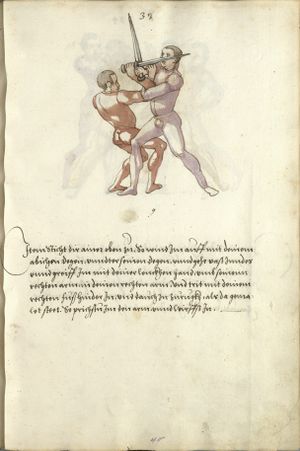 33
Item Sticht dir ainer oben zu. So wind Im auff mit deinem
degen, vnnder seinen degen, vnnd gehe vast In under
vnnd greiff Im mit deiner lenckhen hand, vmb seinenn
rechten arm, in deinen rechten arm. Vnd trit mit deinem
rechten fuss hinder In, vnd Im zuruckh, als da gema-
let steet. So prichstu Im den arm, vnnd wirfst In.